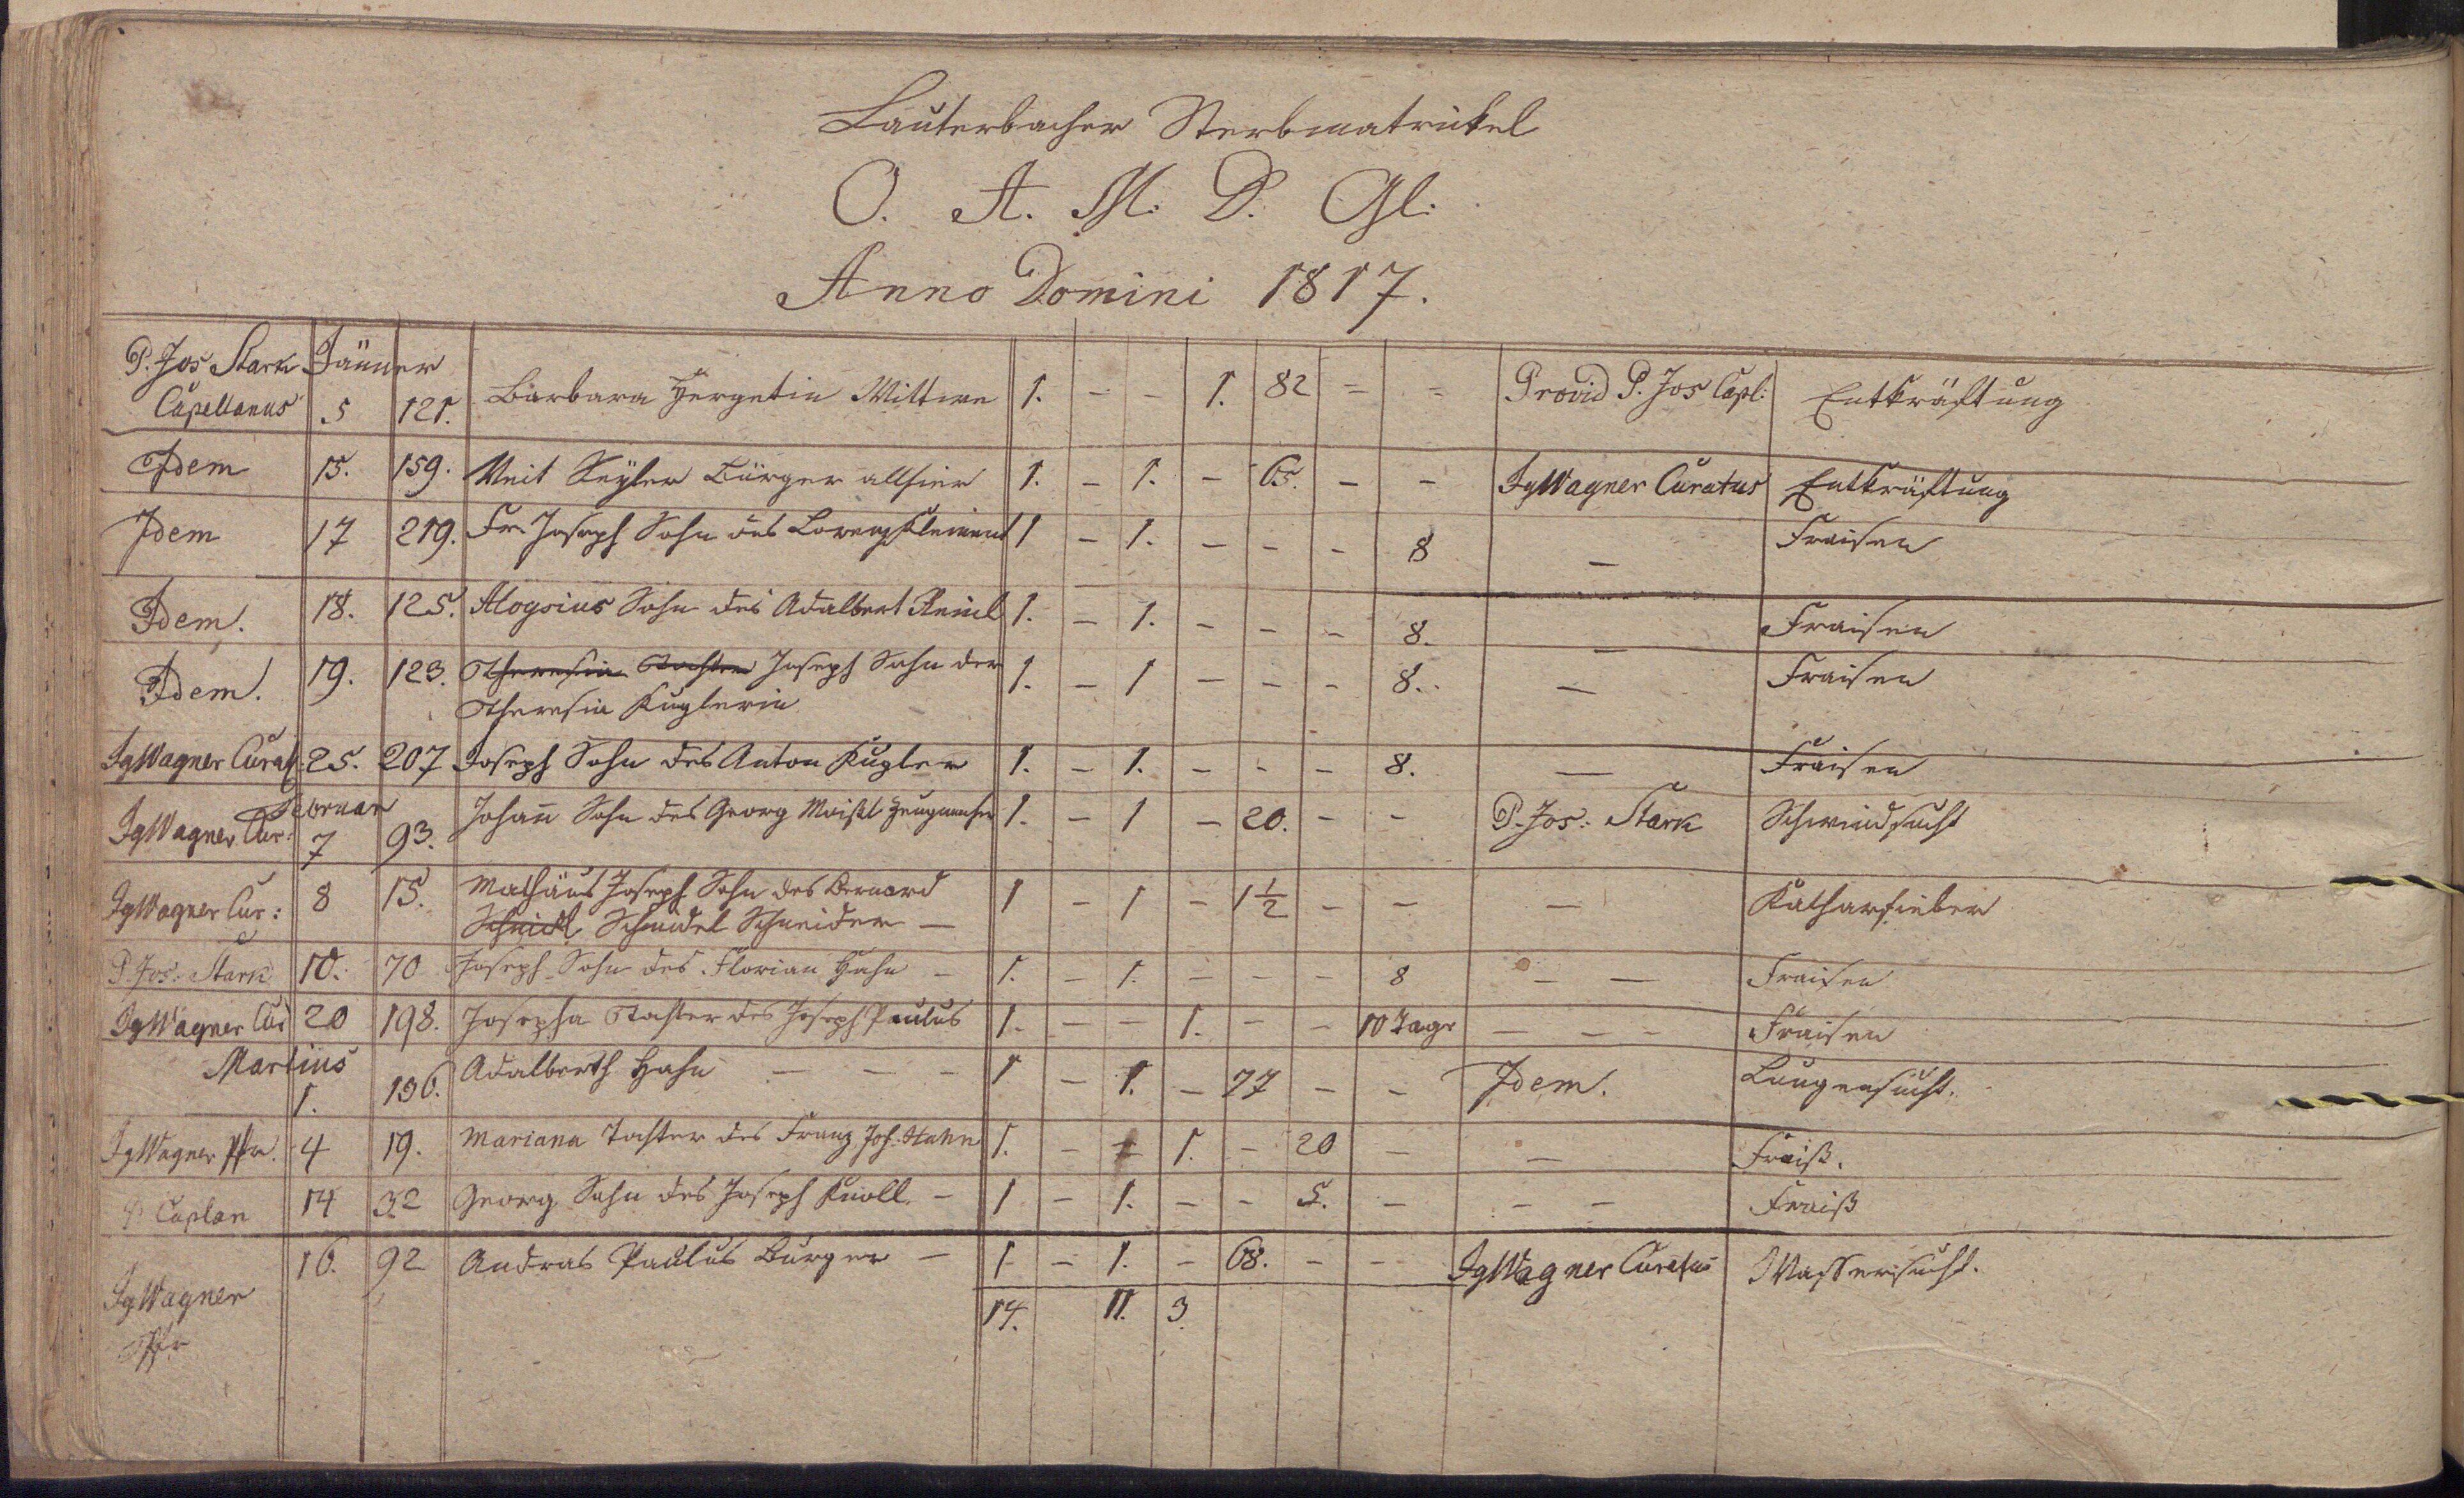 Lauterbacher Sterbmatrickel
O. A. M. D. Gl:
Anno Domini 1817.
P. Jos Stark Jänner
Capellanus 5 121. Barbara Hergetin Wittwe 1. - - 1. 82 = = Provid P. Jos Capl: Entkräftung
Idem 15. 159. Veit Seyler Bürger allhier 1. - 1. - 65. - - IgWagner Curatus Entkräftung
Idem 17 219. Fr. Joseph Sohn des Lorenz Klement 1 - 1. - - - 8 - Fraisen
Idem. 18. 125. Aloysius Sohn des Adalbert Reinl 1. - 1. - - - 8. - Fraisen
Idem. 19. 123. Theresia Tochter Joseph Sohn der 1. - 1 - - - 8. - Fraisen
Theresia Kuglerin
IgWagner Curat: 25. 207 Joseph Sohn des Anton Kugler 1. - 1. - - - 8. - Fraisen
Februar
IgWagner Cur: 7 93. Johann Sohn des Georg 1. - 1 - 20. - - P. Jos: Stark Schwindsucht
IgWagner Cur: 8 15. Mathäus Joseph Sohn des Bernard 1 - 1 - 1½ - - - Katharfieber
Schmidl Schmidel Schneider -
P. Jos: Stark 10. 70 Joseph Sohn des Florian Hahn - 1. - 1. - - - 8 - - Fraisen
IgWagner Cur 20 198. Josepha Tochter des Joseph Paulus 1. - - 1. - - 10 Tage - - - Fraisen
Martius
1. 136. Adalberth Hahn - - - 1 - 1. - 77 - - Idem. Lungensucht.
IgWagner Pfr. 4 19. Mariana Tochter des Franz Jos. Hahn 1. - 1. - 20 - - Fraiß.
Caplan 14 32 Georg Sohn des Joseph Knoll. - 1 - 1. - - 5. - - - Fraiß
16. 92 Andras Paulus Burger - 1 - 1. - 68. - - IgWagner Curatus Wassersucht.
IgWagner
Pfr
14. 11. 3.